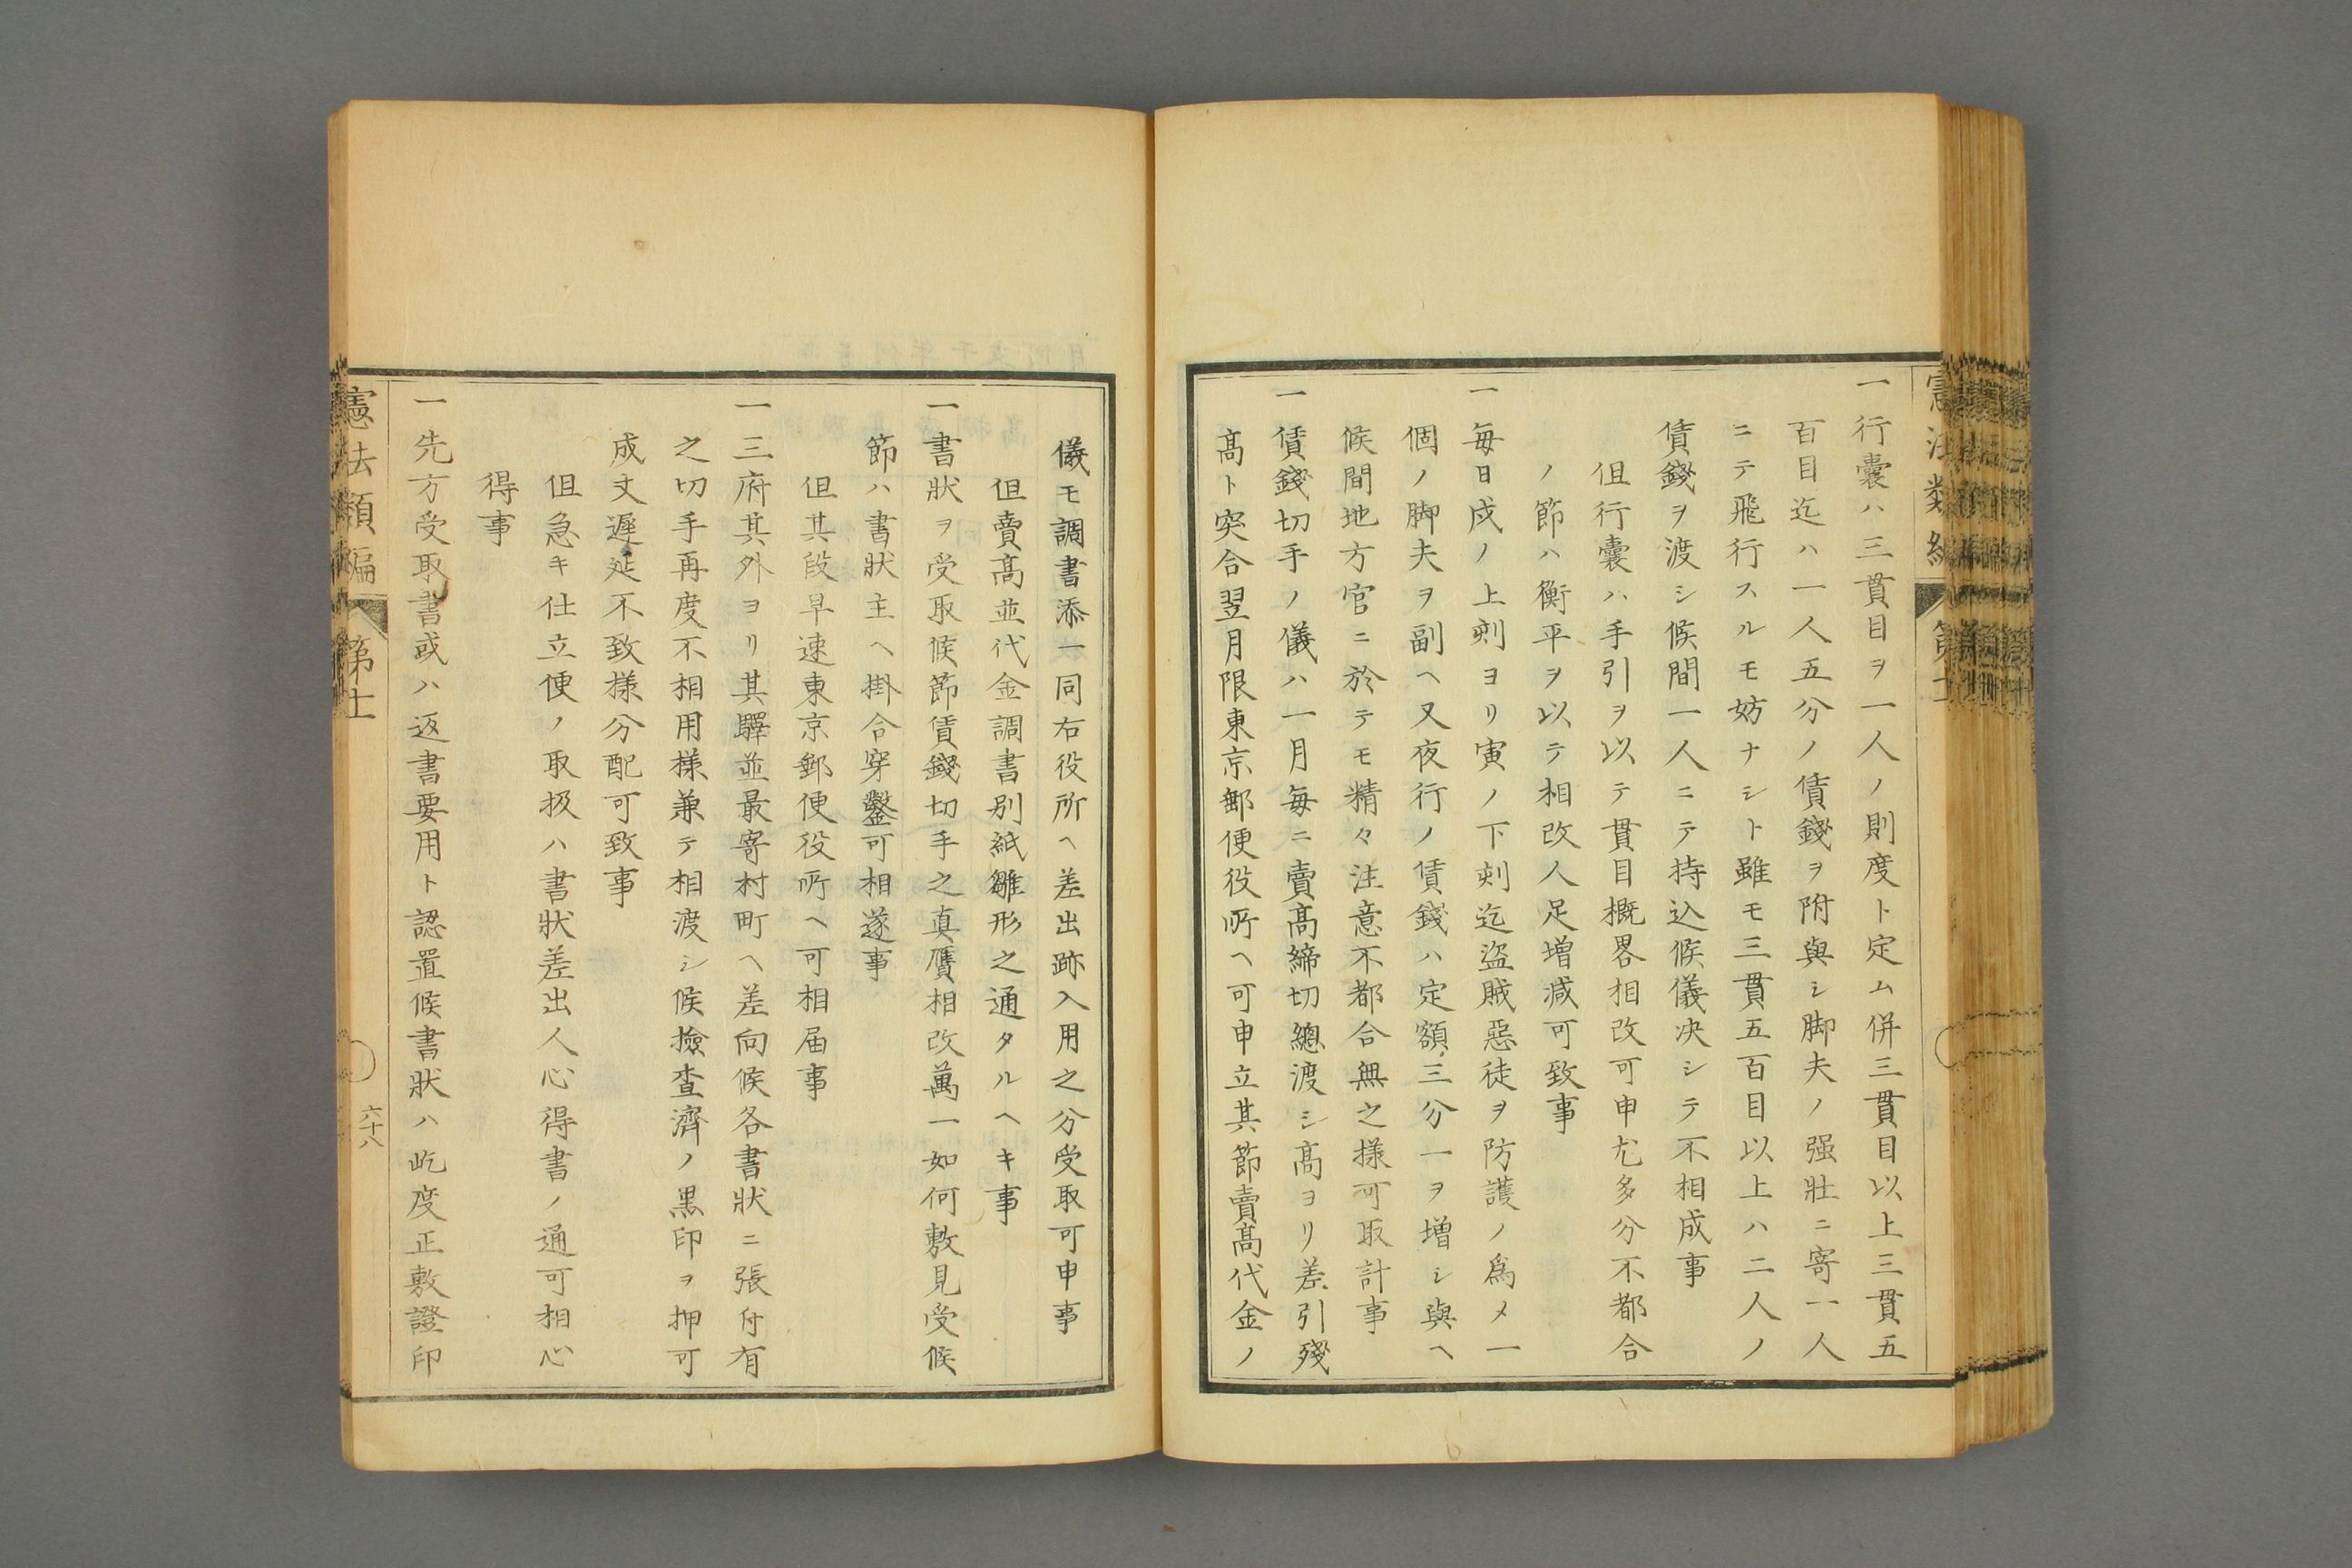 一行囊ハ三貫目ヲ一人ノ則度ト定ム併三貫目以上三貫五
百目迄ハ一人五分ノ賃錢ヲ附與シ脚夫ノ强壯ニ寄一人
ニテ飛行スルモ妨ナシト雖モ三貫五百目以上ハ二人ノ
賃錢ヲ渡シ候間一人ニテ持込候儀決シテ不相成事
但行囊ハ手引ヲ以テ貫目概畧相改可申尤多分不都合
ノ節ハ衡平ヲ以テ相改人足增減可致事
一每日戌ノ上剋ヨリ寅ノ下剋迄盜賊惡徒ヲ防護ノ爲メ一
個ノ脚夫ヲ副ヘ又夜行ノ賃錢ハ定額三分一ヲ增シ與ヘ
候間地方官ニ於テモ精々注意不都合無之樣可取計事
一賃錢切手ノ儀ハ一月每ニ賣髙締切總渡シ髙ヨリ差引殘
髙ト突合翌月限東京郵便役所ヘ可申立其節賣髙代金ノ
儀モ調書添一同右役所ヘ差出跡入用之分受取可申事
但賣髙並代金調書別紙雛形之通タルヘキ事
一書狀ヲ受取候節賃錢切手之真贋相改萬一如何敷見受候
節ハ書狀主ヘ掛合穿鑿可相遂事
但其段早速東京郵便役所ヘ可相届事
一三府其外ヨリ其驛並最寄村町ヘ差向候各書狀ニ張付有
之切手再度不相用樣兼テ相渡シ候撿查濟ノ黒印ヲ押可
成丈遲延不致樣分配可致事
但急キ仕立便ノ取扱ハ書狀差出人心得書ノ通可相心
得事
一先方受取書或ハ返書要用ト認置候書狀ハ屹度正敷證印
憲法類編
第十
六十八